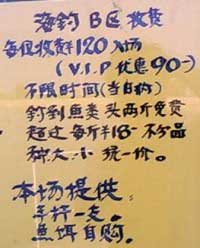 海钓B区收费
每位收费120入场
(V.I.P优惠90-)
不限时间(当日钓)
钓到鱼类头两斤免费
超过每斤半18-不分品
种大小统一价。
本场提供
手杆一支。
鱼饵自购。